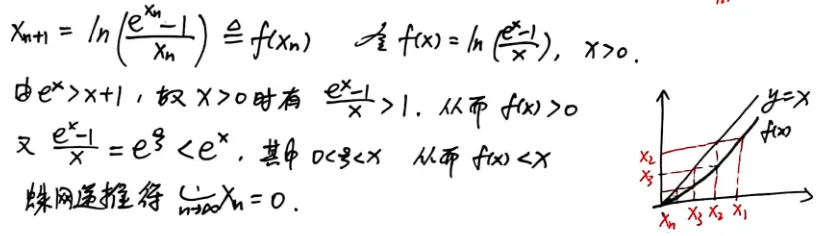 x_{n+1} = ln(\frac{e^{x_n}-1}{x_n}) ≜ f(x_n) 令 f(x) = ln(\frac{e^x-1}{x}), x>0.
由e^x>x+1, 故 x>0时有 \frac{e^x-1}{x}>1. 从而 f(x)>0
又 \frac{e^x-1}{x} = e^ξ < e^x, 其中 0<ξ<x 从而 f(x)<x
蛛网递推得 \lim_{n→∞} x_n = 0.
y=x
f(x)
x_2
x_3
x_n x_3 x_2 x_1